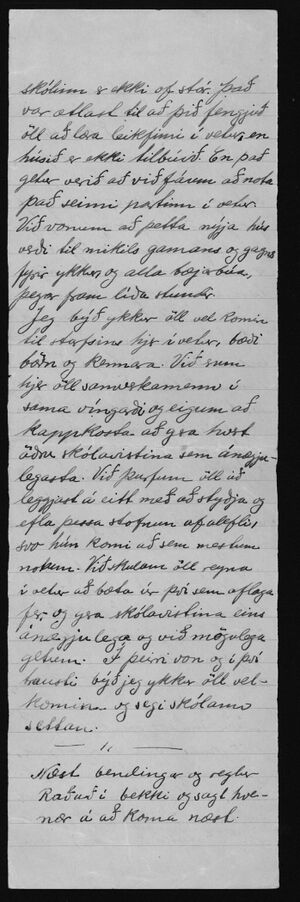 skólinn er ekki of stór. Það
var ætlast til að þið fengjuð
öll að læra leikfimi í vetur, en
húsið er ekki tilbúið. En það
getur verið að við förum að nota
það seinni partinn í vetur.
Við vonum að þetta nýja hús
verði til mikils gamans og gagns
fyrir ykkur, og alla bæjarbúa,
þegar fram líða stundir.
Jeg býð ykkur öll vel komin
til starfsins hjer í vetur, bæði
börn og kennara. Við erum
hjer öll samverkamenn í
sama víngarði og eigum að
kappkosta að gera hvort
öðru skólavistina sem ánægju-
legasta. Við þurfum öll að
leggjast á eitt með að styðja og
efla þessa stofnun af alefli,
svo hún komi að sem mestum
notum. Við skulum öll reyna
í vetur að bæta úr því sem aflaga
fer, og gera skólavistina eins
ánægjulega og við mögulega
getum. Í þeirri von og í því
trausti býð jeg ykkur öll vel-
komin og segi skólann
settan.
Næst bendingar og reglur
Raðað í bekki og sagt hve-
nær á að koma næst.